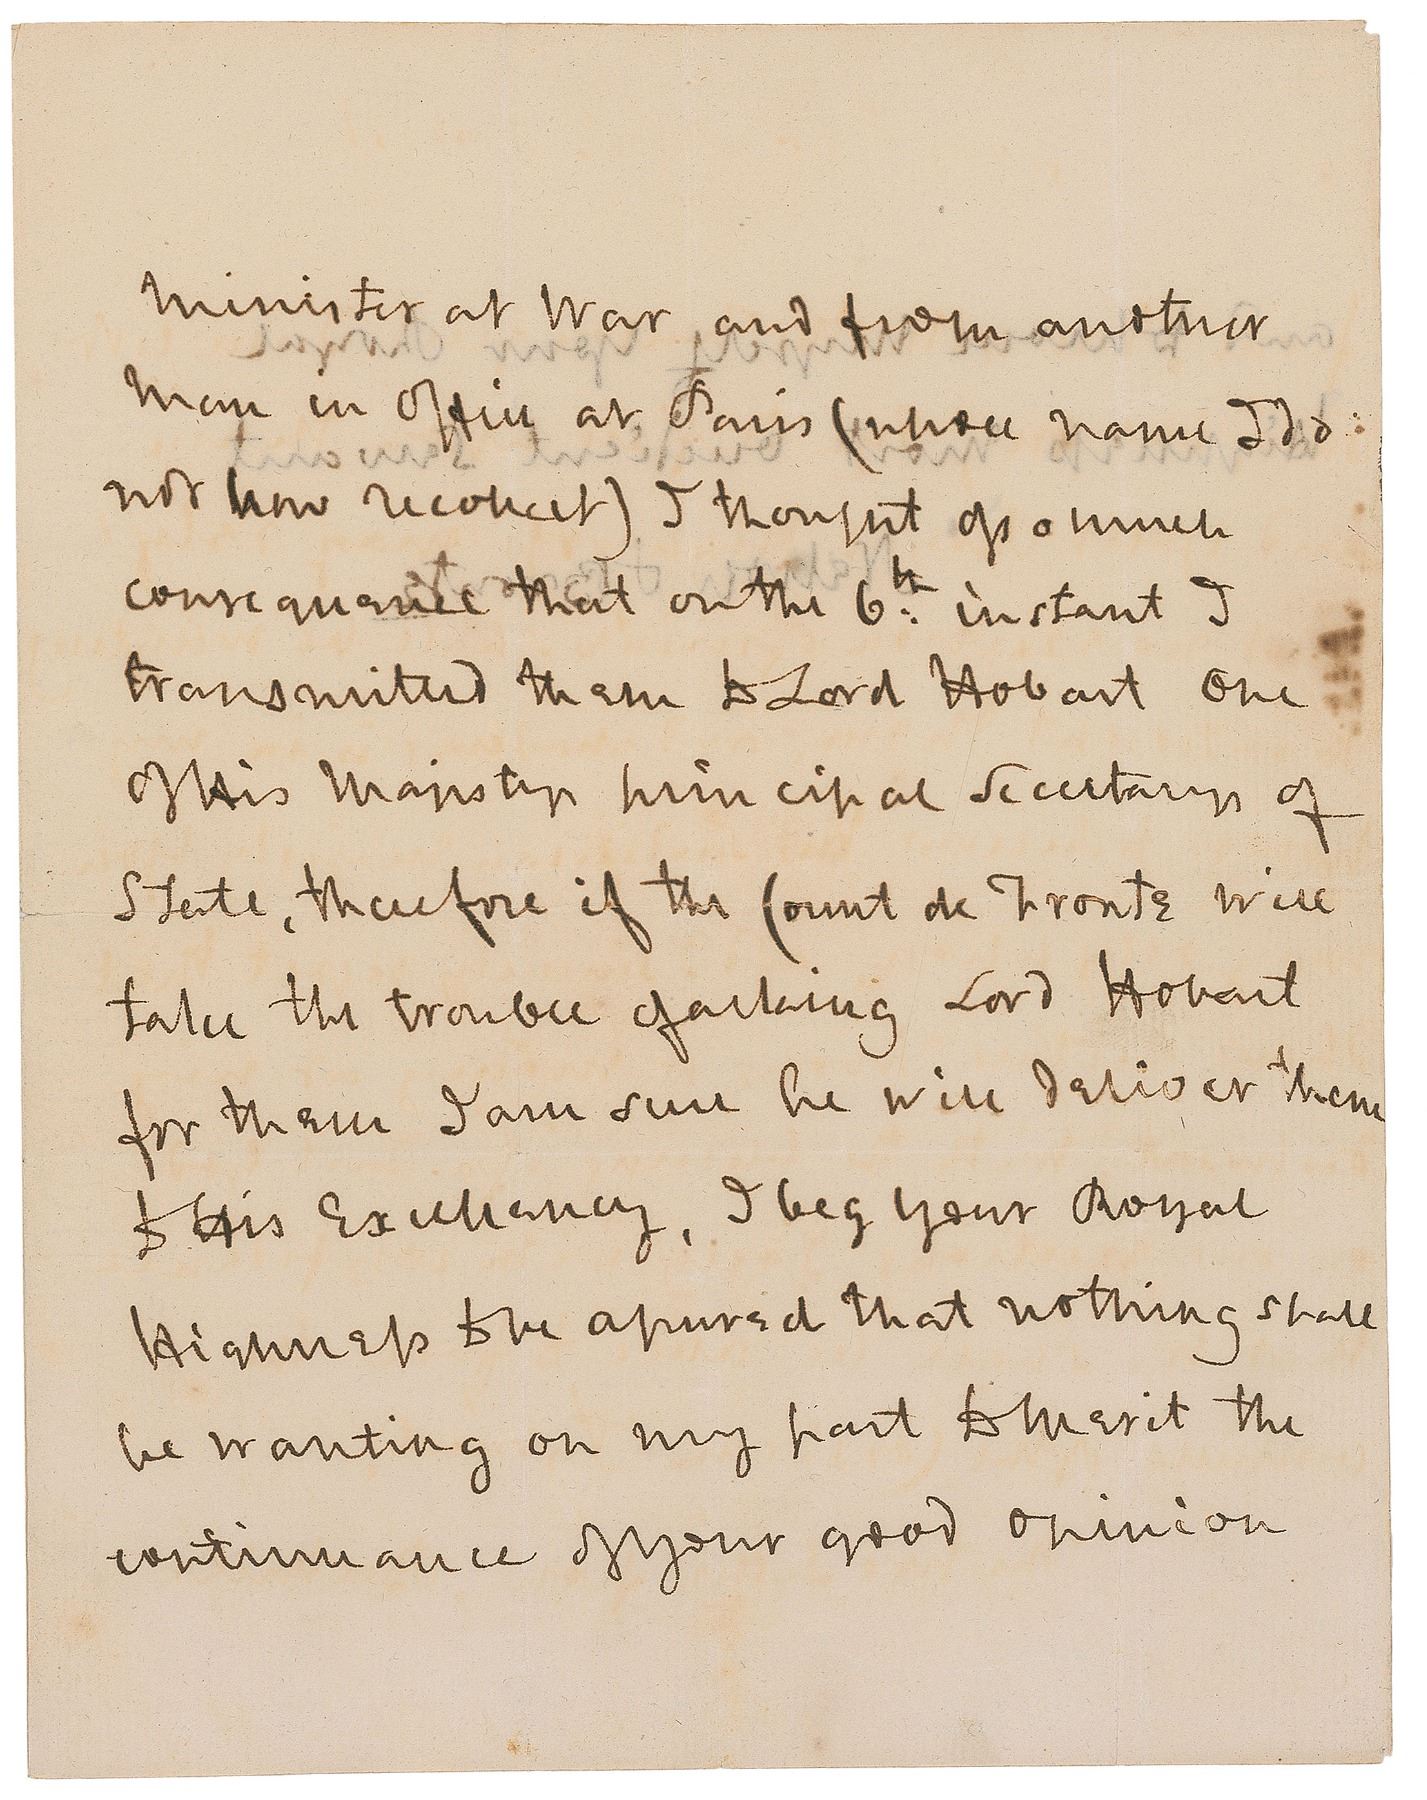 Minister at War and from another
Man in Office at Paris (whose name I do
not now recollect) I thought of so much
consequence that on the 6th. instant I
transmitted them to Lord Hobart One
of His Majestys principal Secretarys of
State, therefore if the Count de Fronte will
take the trouble of asking Lord Hobart
for them I am sure he will deliver them
to His Excellency, I beg Your Royal
Highness to be assured that nothing shall
be wanting on my part to Merit the
continuance of Your good opinion